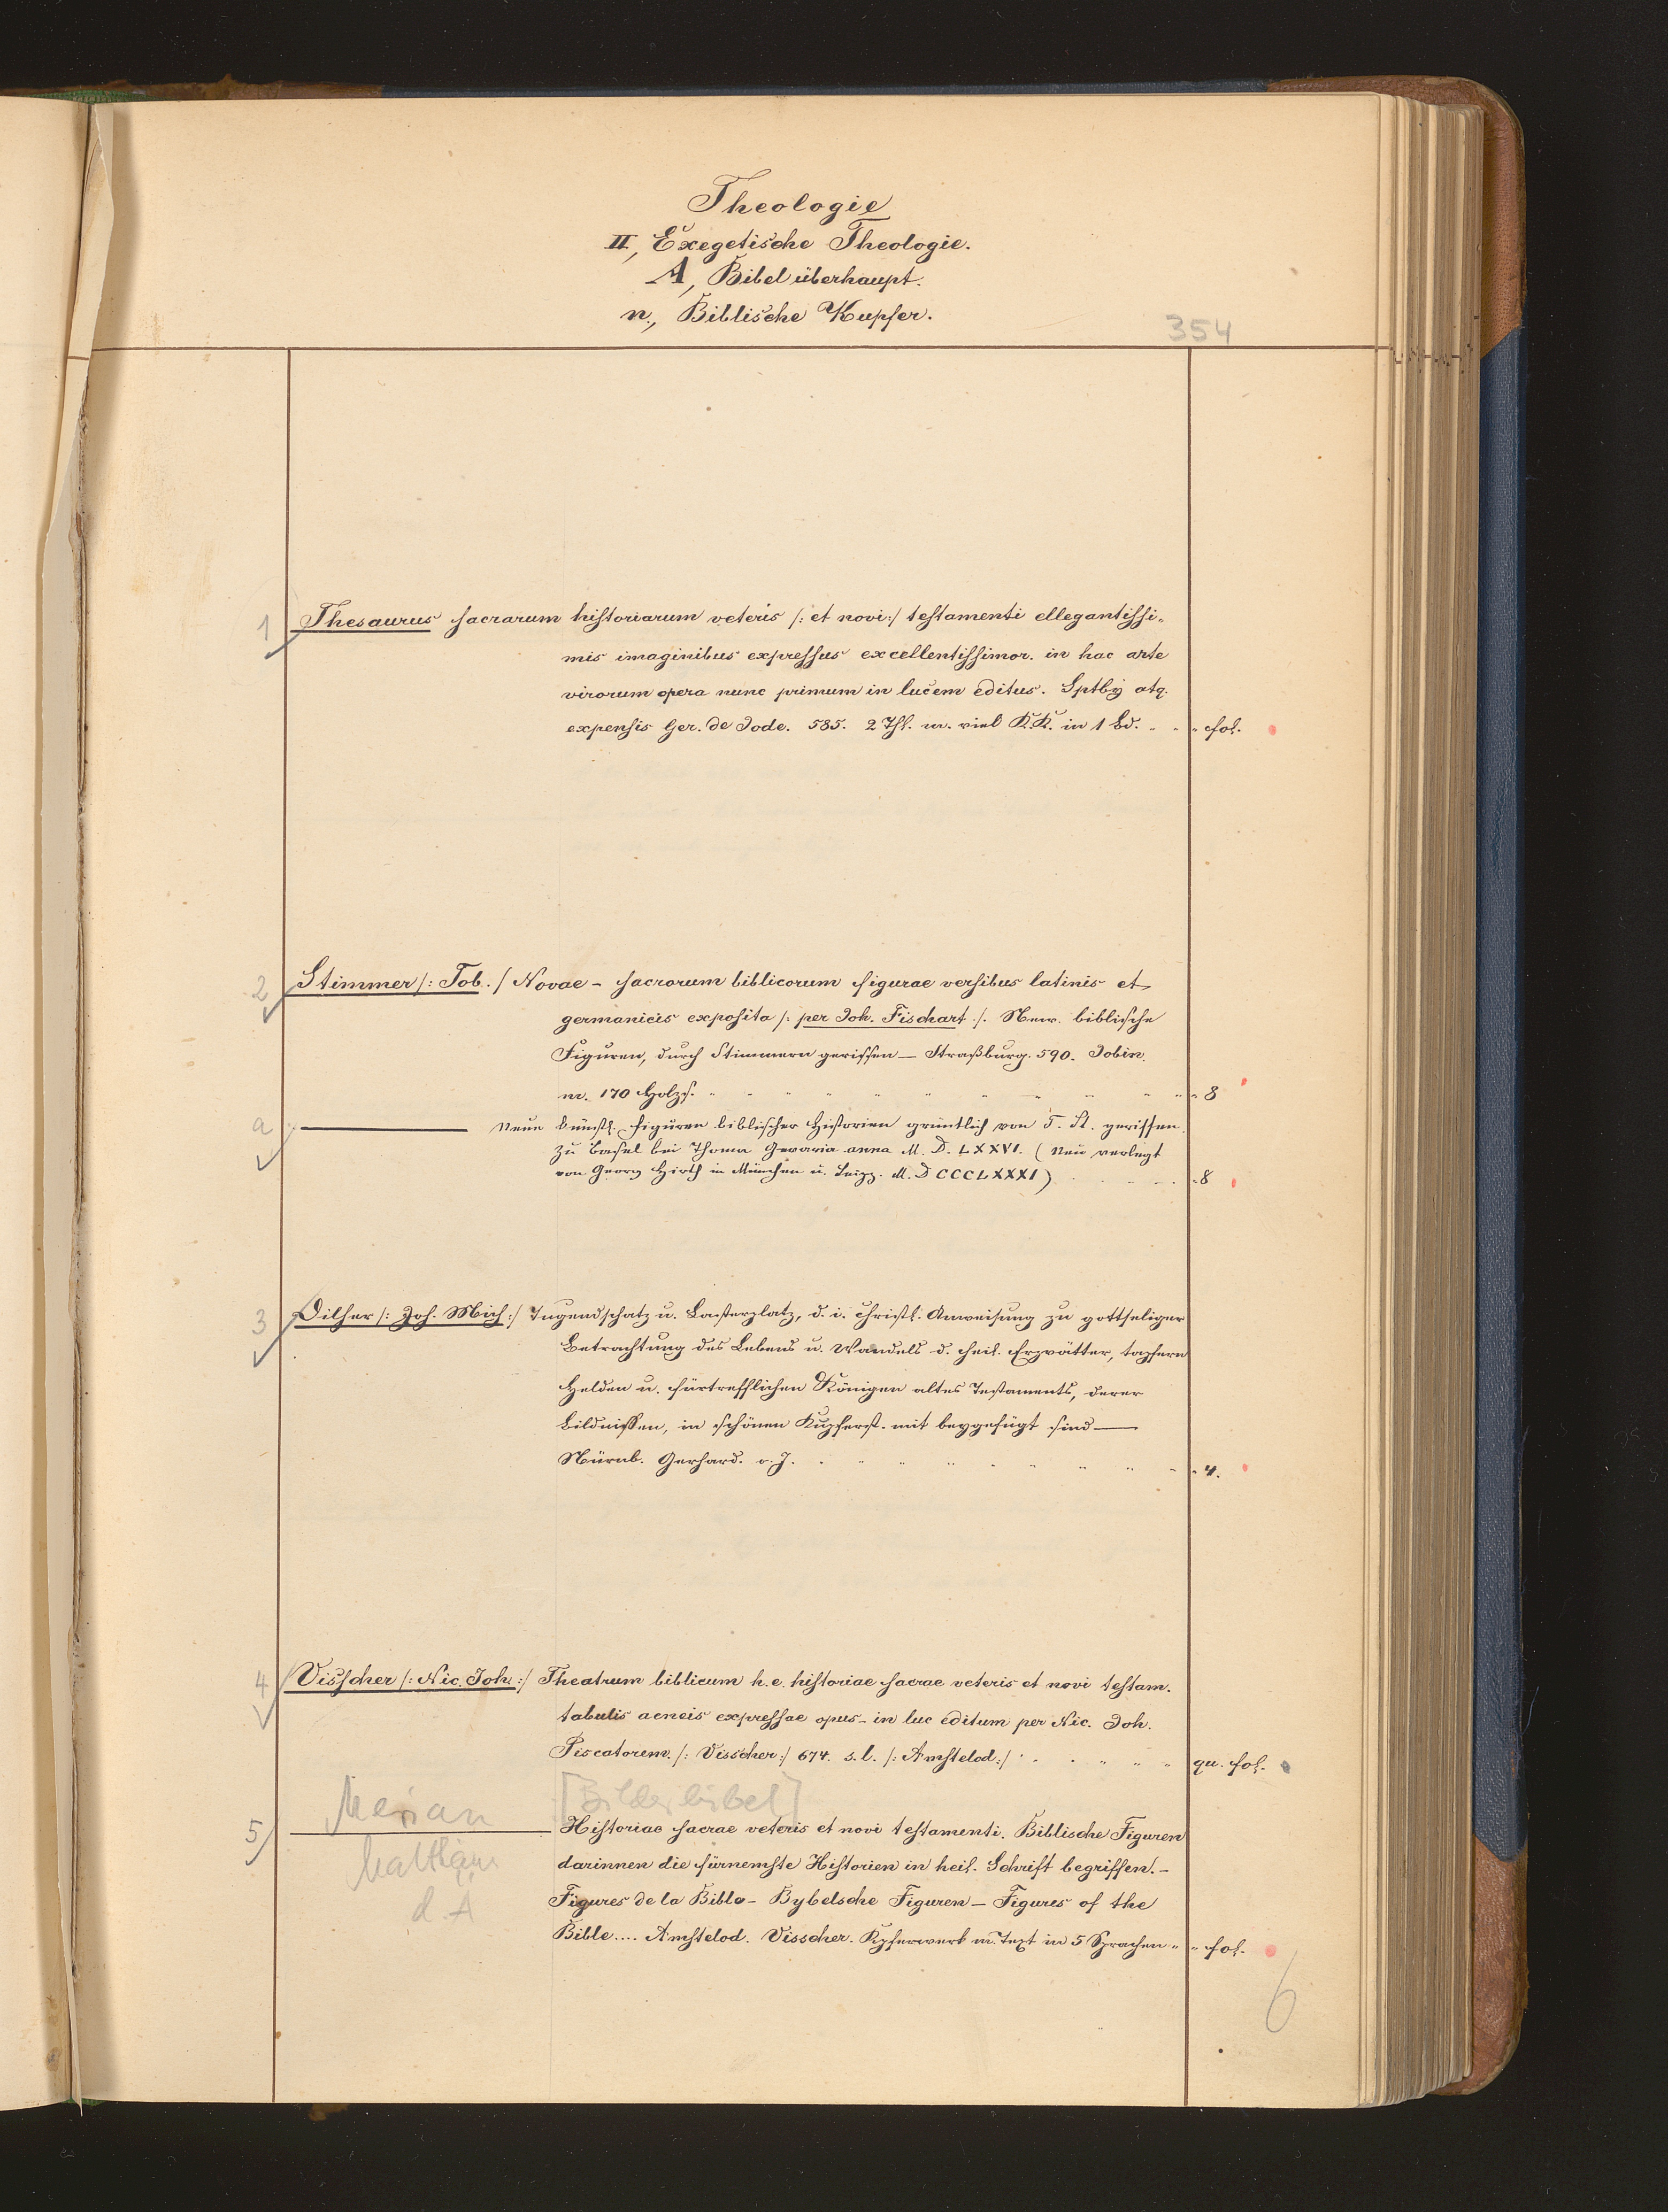 Theologie
II, Exegetische Theologie.
A, Bibel überhaupt.
n., Biblische Kupfer.
354
1 Thesaurus sacrarum historiarum veteris /: et novi :/ testamenti ellegantissi-
mis imaginibus expressus excellentissimor. in hac arte
virorum opera nunc primum in lucem editus. atq.
expensis Ger. de Jode. 585. 2 Thl. m. viel K.K. in 1 Bd. fol.
2 Stimmer /: Tob. / Novae - sacrorum biblicorum figurae versibus latinis et
germanicis exposita /: per Joh. Fischart :/. New. biblische
Figuren, durch Stimmern gerissen — Straßburg. 590. Jobin.
m. 170 Holzs. 8
a — Neue künstl. Figuren biblischer Historien grüntlich von T. St. gerissen.
zu Basel bei Thoma Gwarin anna M. D. LXXVI. (Neu verlegt
von Georg Hirth in München u. Leipz. M. D CCCLXXXI) 8
3 Dilher /: Joh. Mich :/ Tugendschatz u. Lasterplatz, d. i. christl. Anweisung zu gottseliger
Betrachtung des Lebens u. Wandels d. heil. Erzvätter, tapfern
Helden u. fürtrefflichen Königen altes Testaments, derer
Bildnissen, in schönen Kupferst. mit beygefügt sind —
Nürnb. Gerhard. o. J. 4.
4 Visscher /: Nic. Joh :/ Theatrum biblicum h. e. historiae sacrae veteris et novi testam.
tabulis aeneis expressae opus - in luc editum per Nic. Joh.
Piscatorem. /: Visscher :/ 674. s. l. /: Amstelod :/ qu. fol.
Merian [Bilderbibel]
5 — Historiae sacrae veteris et novi testamenti. Biblische Figuren
Matthäus darinnen die fürnemste Historien in heil. Schrift begriffen. -
d. Ä Figures de la Bible - Bybelsche Figuren - Figures of the
Bible.... Amstelod. Visscher. Kpferwerk m. Text in 5 Sprachen fol.
6